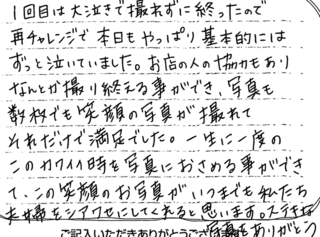 1回目は大泣きで撮れずに終ったので
再チャレンジで本日もやっぱり基本的には
ずっと泣いていました。お店の人の協力もあり
なんとか撮り終える事ができ、写真も
数枚でも笑顔の写真が撮れて
それだけで満足でした。一生に一度の
このカワイイ時を写真におさめる事ができ
て、この笑顔のお写真がいつまでも私たち
夫婦をシアワセにしてくれると思います。ステキな
写真をありがとう
ご記入いただきありがとうござ